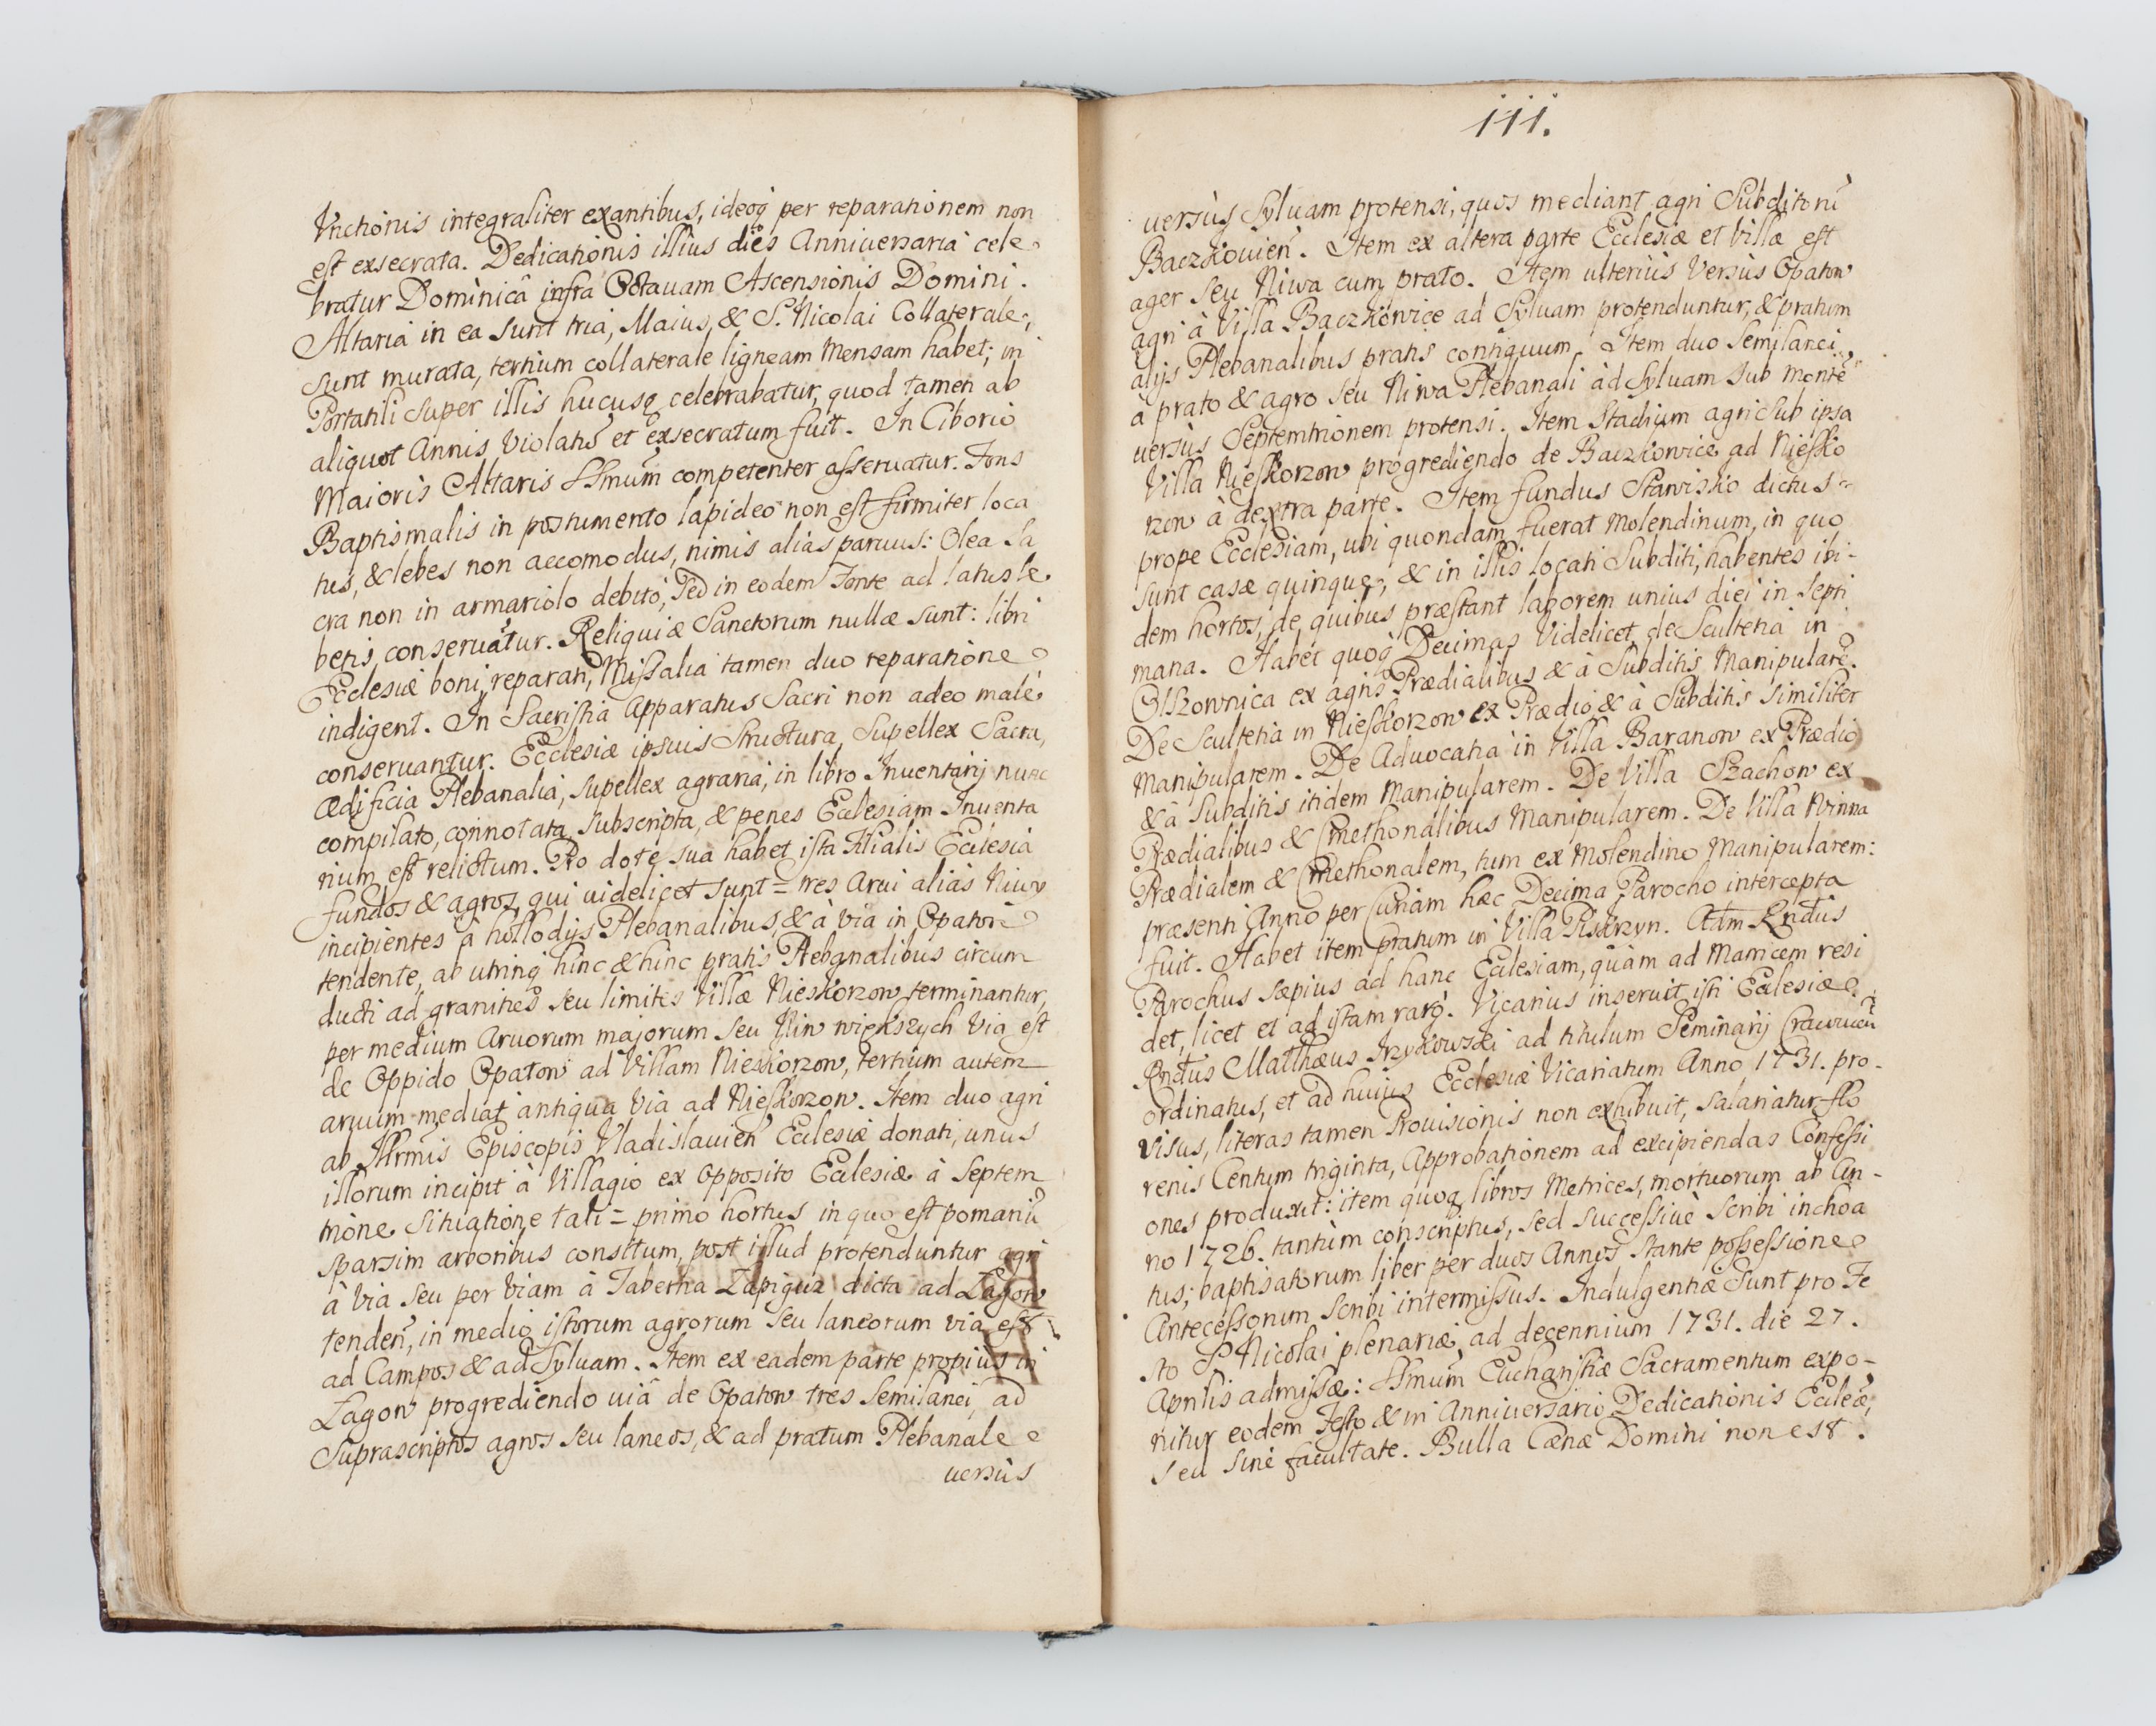 Vnctionis integraliter exantibus, ideoq́ per reparationem non
est exsecrata. Dedicationis illius dies Anniuersaria cele
bratur Dominicâ infra Octauam Ascensionis Domini.
Altaria in ea sunt tria, Maius, & S. Nicolai Collaterale,
sunt murata, tertium collaterale ligneam Mensam habet; in
Portatili super illis hucusq celebrabatur, quod tamen ab
aliquot Annis Violatũ et exsecratum fuit. In Ciborio
Maioris Altaris SSmum̃ competenter asseruatur. Fons
Baptismalis in postumento lapideo non est firmiter loca
tus, & lebes non accomodus, nimis alias paruus: Olea Sa
cra non in armariolo debito, Sed in eodem Fonte ad latus le
betis conseruãtur. Reliquiæ Sanctorum nullæ sunt: libri
Ecclesiæ boni, reparati, Missalia tamen duo reparatione
indigent. In Sacristia Apparatus Sacri non adeo malè
conseruantur. Ecclesiæ ipsius Structura, Supellex Sacra,
Ædificia Plebanalia, Supellex agraria, in libro Inuentarij nunc
compilato, connotata, subscripta, & penes Ecclesiam Inuenta
rium est relictum. Pro dote sua habet ista Filialis Ecclesia
fundos & agros, qui uidelicet sunt = tres Arui alias Niwy
incipientes à hollodijs Plebanalibus, & à via in Opatow
tendente, ab utrinq́ hinc & hinc pratis Plebanalibus circum
ducti ad granities seu limites Villæ Nieskorzow terminantur,
per medium Aruorum majorum seu Niw większych Via est
de Oppido Opatow ad Villam Nieskorzow, tertium autem
aruum mediat antiqua Via ad Nieskorzow. Item duo agri
ab Illrmis Episcopis Vladislauien̄ Ecclesiæ donati, unus
illorum incipit à Villagio ex opposito Ecclesiæ à Septem
trione situatione tali = primo hortus in quo est pomariũ
sparsim arboribus consitum, post istud protenduntur agri
à Via seu per Viam à Taberna Zapiguz dicta ad Łagow
tenden̄, in medio istorum agrorum seu laneorum via est
ad Campos & ad Syluam. Item ex eadem parte propius in
Łagow progrediendo uiâ de Opatow tres Semilanei, ad
Suprascriptos agros seu laneos, & ad pratum Plebanale
uersùs
111.
uersùs Syluam protensi, quos mediant agri Subditorũ
Baczkouien̄. Item ex altera parte Ecclesiæ et Villæ est
ager seu Niwa cum prato. Item ulterius Versùs Opatow
agri à Villa Baczkowice ad Syluam protenduntur, & pratum
alijs Plebanalibus pratis contiguum. Item duo Semilanei
à prato & agro seu Niwa Plebanali ad Syluam sub montẽ
uersùs Septemtrionem protensi. Item Stadium agri sub ipsa
Villa Nieskorzow progrediendo de Baczkowice ad Niesko
rzow à dextra parte. Item fundus Stawisko dictus
prope Ecclesiam, ubi quondam fuerat Molendinum, in quo
sunt casæ quinque, & in illis locati Subditi, habentes ibi-
dem hortos, de quibus præstant laborem unius diei in Septi
mana. Habet quoq́ Decimas Videlicet de Scultetia in
Olszownica ex agris Prædialibus & à Subditis Manipularẽ.
De Scultetia in Nieskorzow ex Prædio & à Subditis similiter
Manipularem. De Aduocatia in Villa Baranow ex Prædio
& à Subditis itidem Manipularem. De Villa Szachow ex
Prædialibus & Cmethonalibus Manipularem. De Villa Winna
Prædialem & Cmethonalem, tum ex Molendino Manipularem:
præsenti Anno per Curiam hæc Decima Parocho intercepta
fuit. Habet item pratum in Villa Piskrzyn. Adm Rndus
Parochus sæpius ad hanc Ecclesiam, quàm ad Matricem resi
det, licet et ad istam rarò. Vicarius inseruit isti Ecclesiæ
Rndus Matthæus Irzykowski ad titulum Seminarij Cracouien̄
ordinatus, et ad huius Ecclesiæ Vicariatum Anno 1731. pro-
visus, literas tamen Prouisionis non exhibuit, salariatur flo
renis Centum triginta, Approbationem ad excipiendas Confessi
ones produxit: item quoq libros Metrices, mortuorum ab An-
no 1726. tantùm conscriptus, sed successiuè Scribi inchoa
tus; baptisatorum liber per duos Annos stante possessione
Antecessorum scribi intermissus. Indulgentiæ Sunt pro Fe
sto S. Nicolai plenariæ, ad decennium 1731. die 27.
Aprilis admissæ: SSmum̃ Eucharistiæ Sacramentum expo-
nitur eodem Festo & in Anniuersario Dedicationis Eccleæ,
seu sine facultate. Bulla Cænæ Domini non est.